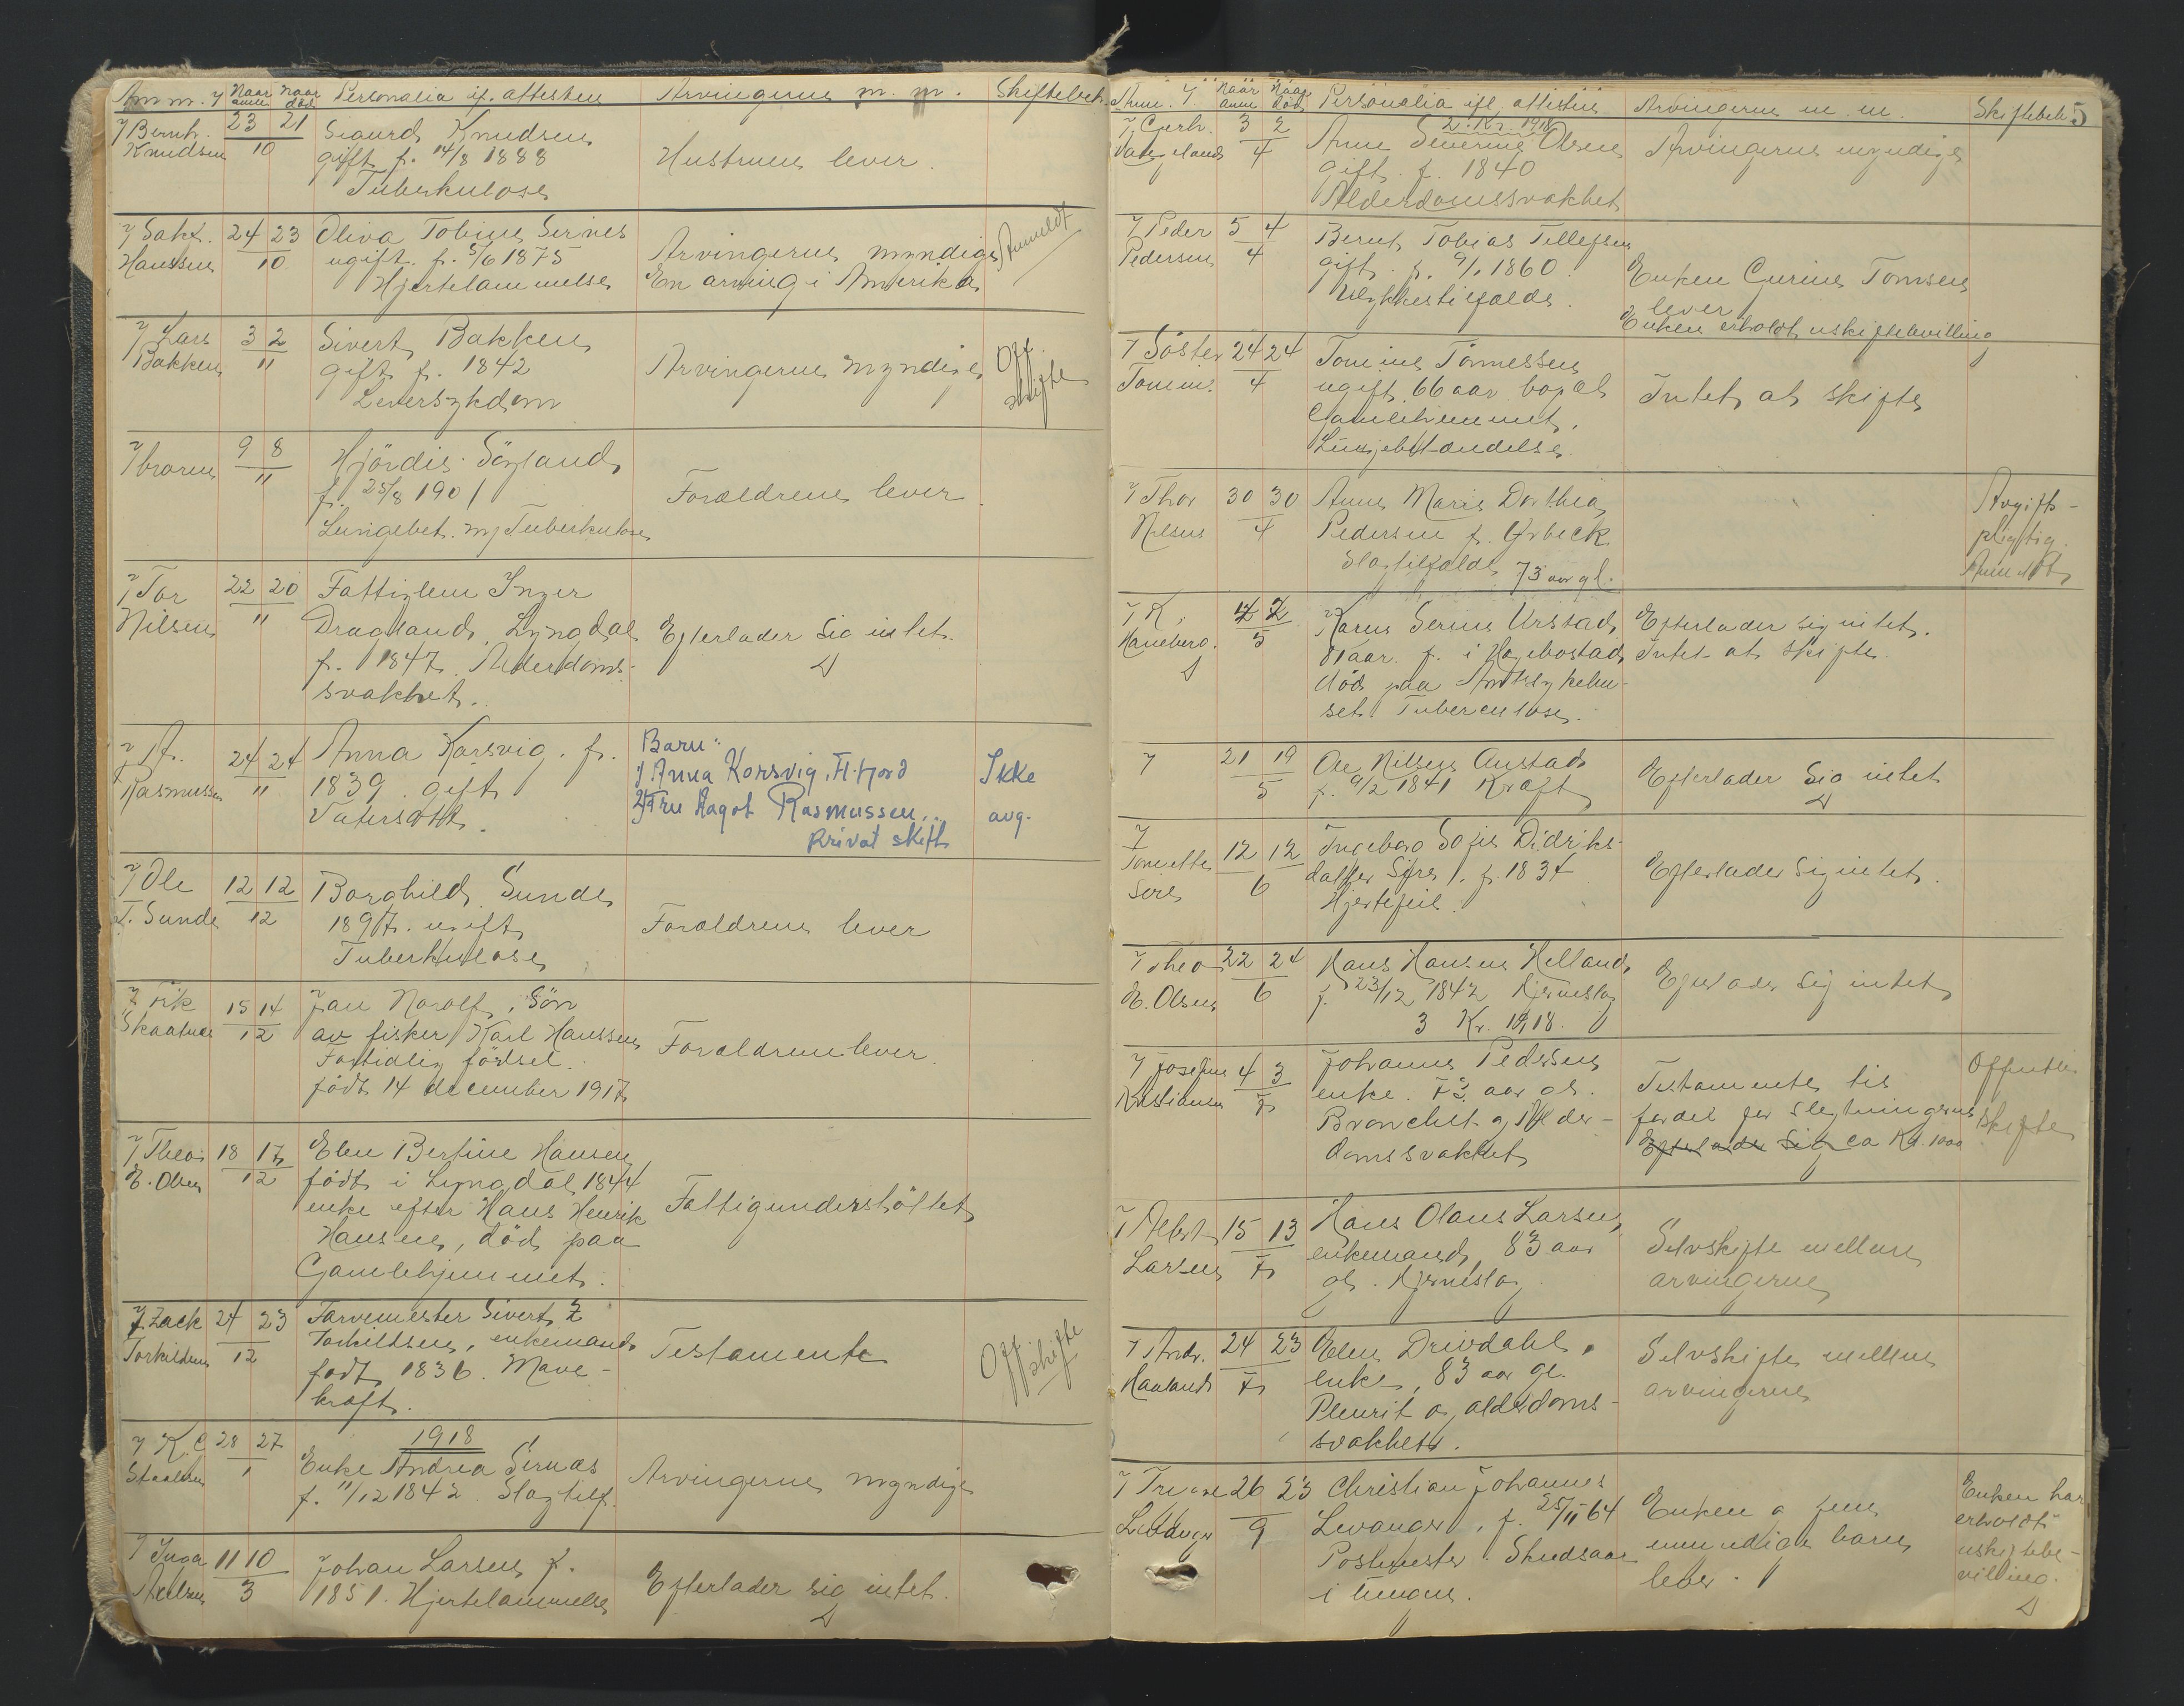 Anm. 7 Naar anm. Naar död Personalia if. attesten Arvingerne m. m. Skiftebeh.
7 Bernh. 23 21 Sigurd Knudsen
Knudsen 10 gift f. 14/8 1888 Hustruen lever.
Tuberkulose
7 Sakt. 24 23 Oliva Tobine Sirnes
Hanssen 10 ugift. f. 5/6 1875 Arvingerne myndige Anmeldt
Hjertelammelse En arving i Amerika
7 Lars 3 2 Sivert Bakken
Bakken 11 gift f. 1842 Arvingerne myndige Off.
Leversykdom skifte
7 broren 9 8 Hjördis Söyland
11 f. 25/8 1901 Forældrene lever.
Lungebet. m/Tuberkulose
7 Tor 22 20 Fattiglem Inger
Nilsen 11 Dragland, Lyngdal Efterlader sig intet.
f. 1847. Alderdoms-
svakhet.
7 A. 24 24 Anna Korsvig. f. Barn:
Rasmussen 11 1839. gift 1) Anna Korsvig, F.fjord Ikke
Vatersott. 2) Fru Dagot Rasmussen avg.
Privat skifte
7 Ole 12 12 Borghild Sunde
T. Sunde 12 1897. ugift Forældrene lever
Tuberkulose
7 Fik 15 14 Jan Norolf, Sön
Skaatnes 12 av fisker Karl Hanssen Forældrene lever.
Fortidlig födsel.
födt 14 december 1917
7 Theo. 18 17 Elen Bertine Hansen
E. Olsen 12 födt i Lyngdal 1844
enke efter Hans Henrik Fattigunderstöttet
Hansen, död paa
Gamlehjemmet.
7 Zack 24 23 Farvemester Sivert Z
Torkildsen 12 Torkildsen, enkemand Testamente Off skifte
födt 1836. Mave-
kræft.
1918
7 K. C 28 27 Enke Andrea Sirnæs
Staalesen 1 f. 11/12 1842. Slagtilf. Arvingerne myndige
7 Inga 11 10 Johan Larsen f.
Axelsen 3 1851. Hjertelammelse Efterlader sig intet.
Anm. 7. Naar anm Naar död Personalia ifl. attesten Arvingerne m. m. Skiftebeh. 5
2. Kv. 1918
7 Gerh. 3 2 Anne Severine Olsen Arvingerne myndige
Vatneland 4 gift. f. 1840
Alderdomssvakhet
7 Peder 5 4 Bernt Tobias Tellefsen
Pedersen 4 gift. f. 9/1 1860. Enken Gurine Tomsen
Ulykkestilfælde. lever
Enken erholdt uskiftebevilling
7 Söster 24 24 Tomine Tönnessen
Tomine. 4 ugift. 66 aar bopæl Intet at skifte
Gamlehjemmet.
Lungebetændelse
7 Thor 30 30 Anne Marie Dorthea Avgifts-
Nilsen 4 Pedersen f. Grbeck pligtig.
Slagtilfælde 73 aar gl. Anmeldt
7 K. 4 2 Karen Serine Urstad, Efterlader sig intet.
Haneberg. 5 81 aar. f. i Hægebostad Intet at skifte.
död paa Amtssykehu-
set. Tuberculose.
7 21 19 Ole Nilsen Austad
5 f. 9/2 1841 Kræft Efterlader sig intet
7 Tomette 12 12 Ingeborg Sofie Didriks-
Sires 6 datter Sires. f. 1834 Efterlader sig intet.
Hjertefeil.
7 Theo 22 24 Hans Hansen Helland,
E. Olsen 6 f. 23/12 1842 Hjerneslag Efterlader sig intet
3 Kv. 1918.
7 Josefine 4 3 Johanne Pedersen Offentlig
Kristiansen 7 enke. 75 aar gl. Testamente til
Bronchit. og Alder- fordel for slegtningerne skifte
domssvakhet Efterlader sig ca Kr. 1000
7 Albert 15 13 Hans Olaus Larsen,
Larsen 7 enkemand, 83 aar Selvskifte mellem
gl. Hjerneslag arvingerne
7 Andr. 24 23 Elen Drivdahl, Selvskifte mellem
Hauland 7 enke, 83 aar gl. arvingerne
Pleurit og alderdoms-
svakhet.
7 Trine 26 23 Christian Johannes Enken har
Levanger 9 Levanger, f. 25/11 64 Enken og fem erholdt
Postmester. Skudsaar umyndige barn uskiftebe-
i tungen. lever. villing.